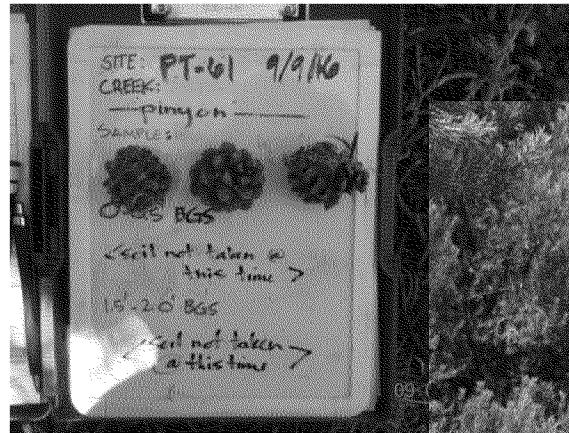 SITE: PT-61 9/9/16
CREEK:
pinyon
SAMPLE:
0-0.5 BGS
<soil not taken @
this time>
1.5'-2.0' BGS
<soil not taken
@ this time>
09